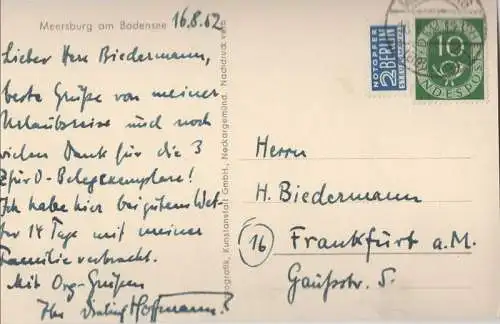 Meersburg am Bodensee
16.8.52
Lieber Herr Biedermann,
beste Grüße von meiner
Urlaubsreise und noch
vielen Dank für die 3
ZfürO-Belegexemplare!
Ich habe hier bei gutem Wet-
ter 14 Tage mit meiner
Familie verbracht.
Mit Org-Grüßen
Ihr Hoffmann
Kunstanstalt GmbH., Neckargemünd. Nachdruck verb.
NOTOPFER
2 BERLIN
STEUERMARKE
10
DEUTSCHE
BUNDESPOST
Herrn
H. Biedermann
(16) Frankfurt a.M.
Gaußstr. 5